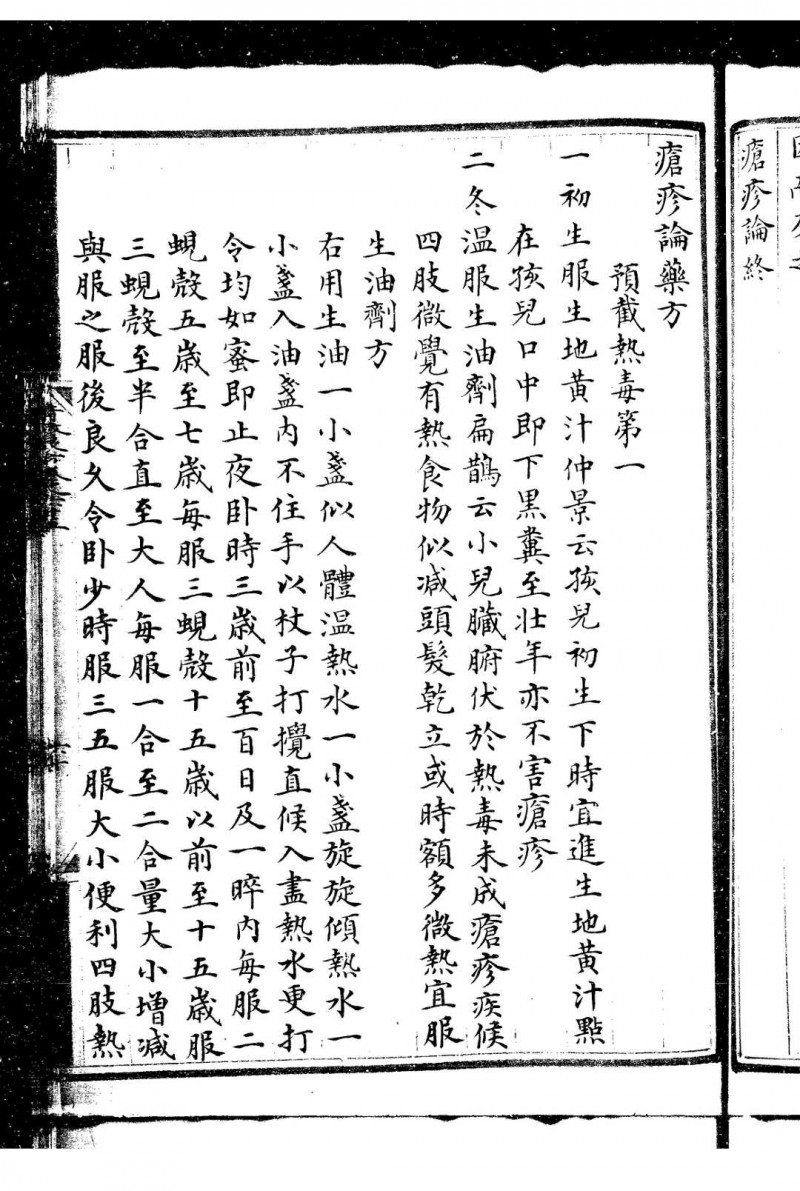 瘡疹論終
瘡疹論藥方
預截熱毒第一
一初生服生地黃汁仲景云孩兒初生下時宜進生地黃汁點
在孩兒口中即下黑糞至壯年亦不害瘡疹
二冬溫服生油劑扁鵲云小兒臟腑伏於熱毒未成瘡疹疾候
四肢微覺有熱食物似減頭髮乾立或時額多微熱宜服
生油劑方
右用生油一小盞似人體溫熱水一小盞旋旋傾熱水一
小盞入油盞內不住手以杖子打攪直候入盡熱水更打
令均如蜜即止夜卧時三歲前至百日及一晬內每服二
蜆殼五歲至七歲每服三蜆殼十五歲以前至十五歲服
三蜆殼至半合直至大人每服一合至二合量大小增減
與服之服後良久令卧少時服三五服大小便利四肢熱